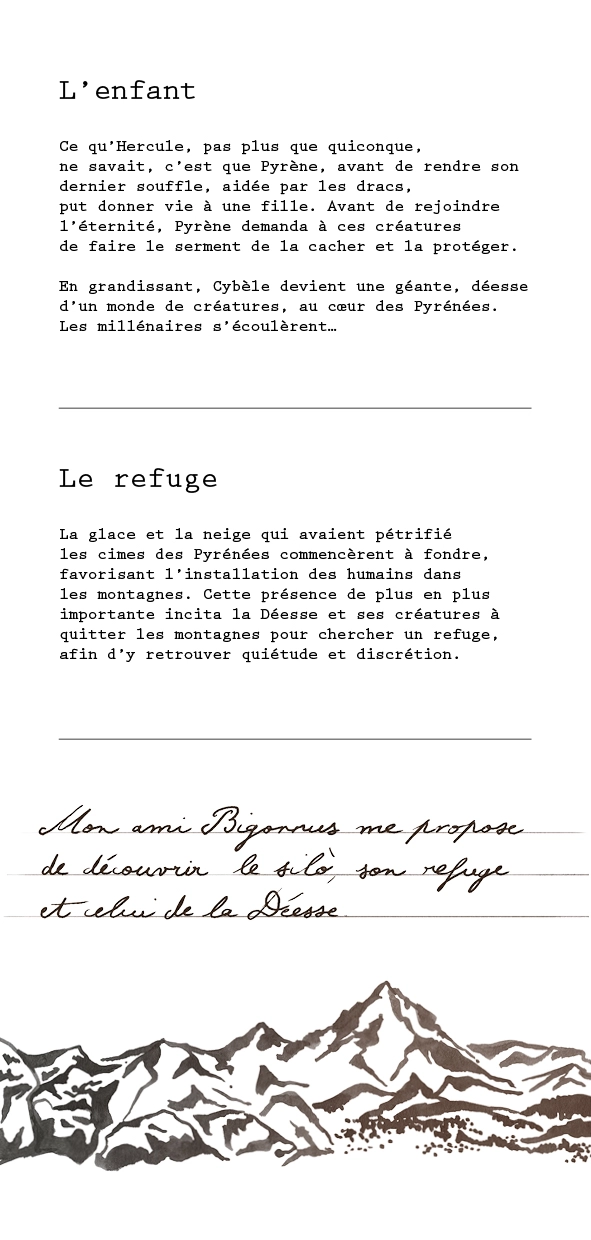 L’enfant
Ce qu’Hercule, pas plus que quiconque,
ne savait, c’est que Pyrène, avant de rendre son
dernier souffle, aidée par les dracs,
put donner vie à une fille. Avant de rejoindre
l’éternité, Pyrène demanda à ces créatures
de faire le serment de la cacher et la protéger.
En grandissant, Cybèle devient une géante, déesse
d’un monde de créatures, au cœur des Pyrénées.
Les millénaires s’écoulèrent…
Le refuge
La glace et la neige qui avaient pétrifié
les cimes des Pyrénées commencèrent à fondre,
favorisant l’installation des humains dans
les montagnes. Cette présence de plus en plus
importante incita la Déesse et ses créatures à
quitter les montagnes pour chercher un refuge,
afin d’y retrouver quiétude et discrétion.
Mon ami Bigornus me propose
de découvrir le silò, son refuge
et celui de la Déesse.